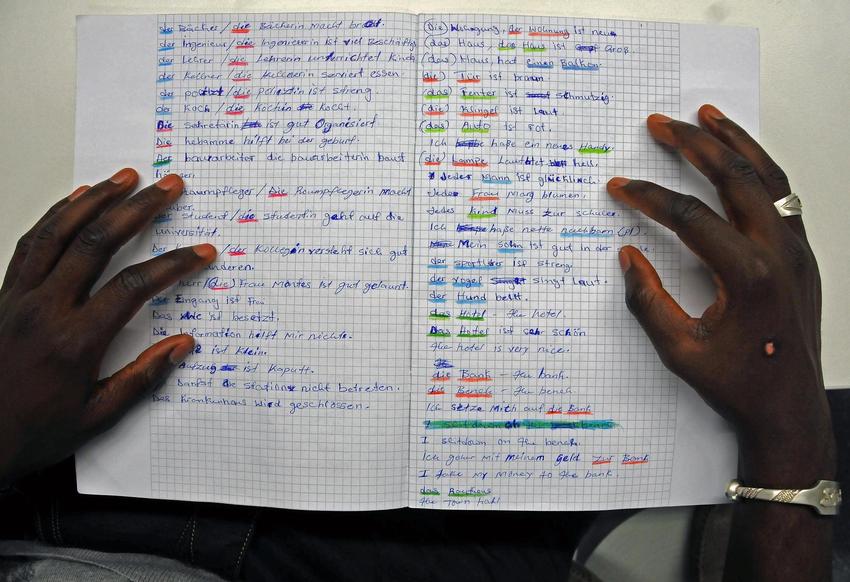 der Bächer / die Bächerin macht brot.
der Ingenieur / die Ingenieurin ist viel Beschäftig
der Lehrer / die Lehrerin unterrichtet Kinde
der Kellner / die Kellnerin serviert essen.
der polizist / die polizistin ist streng.
der Koch / die Köchin kocht.
Die Sekretärin ist gut Organisiert
Die hebamme hilft bei der geburt.
Der bauarbeiter die bauarbeiterin baut
häuser.
Raumpfleger / Die Raumpflegerin macht
sauber.
der student / die studentin geht auf die
universität.
Der / der Kollegin versteht sich gut
anderen.
herr (Die) Frau Montes ist gut gelaunt.
Die Eingang ist Frei
Das ist besetzt.
Die Information hilft mir nichts.
ist klein.
Aufzug ist Kaputt.
Darfst die station nicht betreten.
Das Krankenhaus wird geschlossen.
(Die) Wohnung, der Wohnung ist neu
(das) Haus, das Haus ist Groß.
(das) Haus, hat einen Balkon.
(die) Tür ist braun.
(das) Fenter ist schmutzig.
(die) Klingel ist Laut.
(das) Auto ist Rot.
Ich haße ein neues Handy.
(die) Lampe Lautbtet hell.
Jeder Mann ist glücklich.
Jede Frau mag blumen.
Jedes kind muss zur schule.
Ich haße nette nachbarn (pl).
Mein sohn ist gut in der
der sportler ist streng
der vogel singt laut.
der Hund bellt.
das Hotel - the hotel.
Das Hotel ist sehr schön
The hotel is very nice.
die Bank - the bank.
die Bench - the bench
Ich setze mich auf die Bank
I sitdown on the bench.
Ich gehe mit meinem geld zur Bank
I take my money to the bank.
das Raathaus
the Town hahl